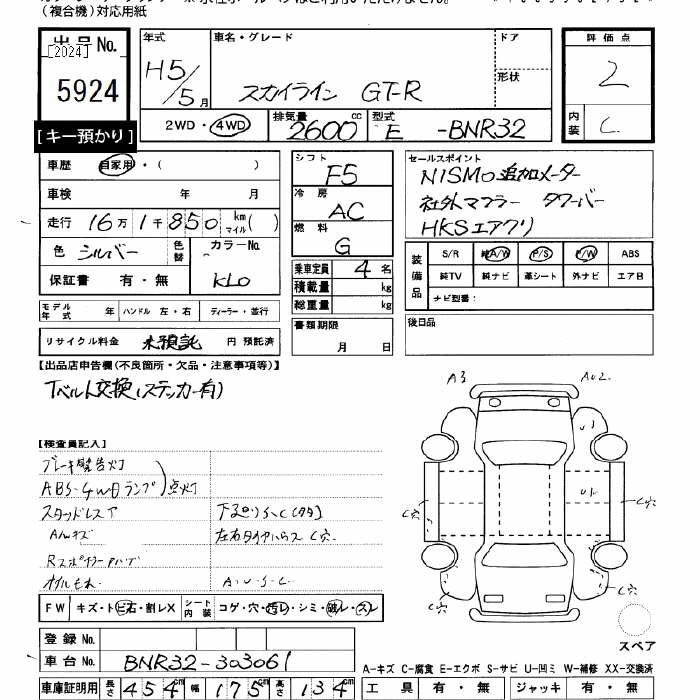 (複合機)対応用紙
出品No.
[2024]
5924
[キー預かり]
年式
H5/5月
車名・グレード
スカイライン GT-R
ドア
形状
評価点
2
内装
C
2WD・4WD
排気量
2600cc
型式
E -BNR32
車歴 自家用・( )
車検 年 月
走行 16万1千850 km マイル( )
色 シルバー 色替
カラーNo.
KL0
保証書 有・無
モデル年式 年 ハンドル 左・右 ディーラー・並行
リサイクル料金 未預託 円 預託済
シフト
F5
冷房
AC
燃料
G
乗車定員 4 名
積載量 kg
総重量 kg
書類期限
月 日
セールスポイント
NISMO追加メーター
社外マフラー タワーバー
HKSエアクリ
装備品
S/R 純A/W P/S P/W ABS
純TV 純ナビ 革シート 外ナビ エアB
ナビ型番:
後日品
【出品店申告欄(不良箇所・欠品・注意事項等)】
Tベルト交換(ステッカー有)
【検査員記入】
ブレーキ警告灯
ABS-4WDランプ 点灯
スタッドレスT
下廻りS・C
左右タイヤハウスC穴
オイルもれ
A・U・S・C
FW キズ・トビ石・割レX
シート内装 コゲ・穴・汚レ・シミ・破レ・スレ
登録No.
車台No. BNR32-303061
車庫証明用 長さ 454cm 幅 175cm 高さ 134cm
A3
A02
C穴
C穴
C穴
C穴
スペア
A-キズ C-腐食 E-エクボ S-サビ U-凹ミ W-補修 XX-交換済
工具 有・無 ジャッキ 有・無